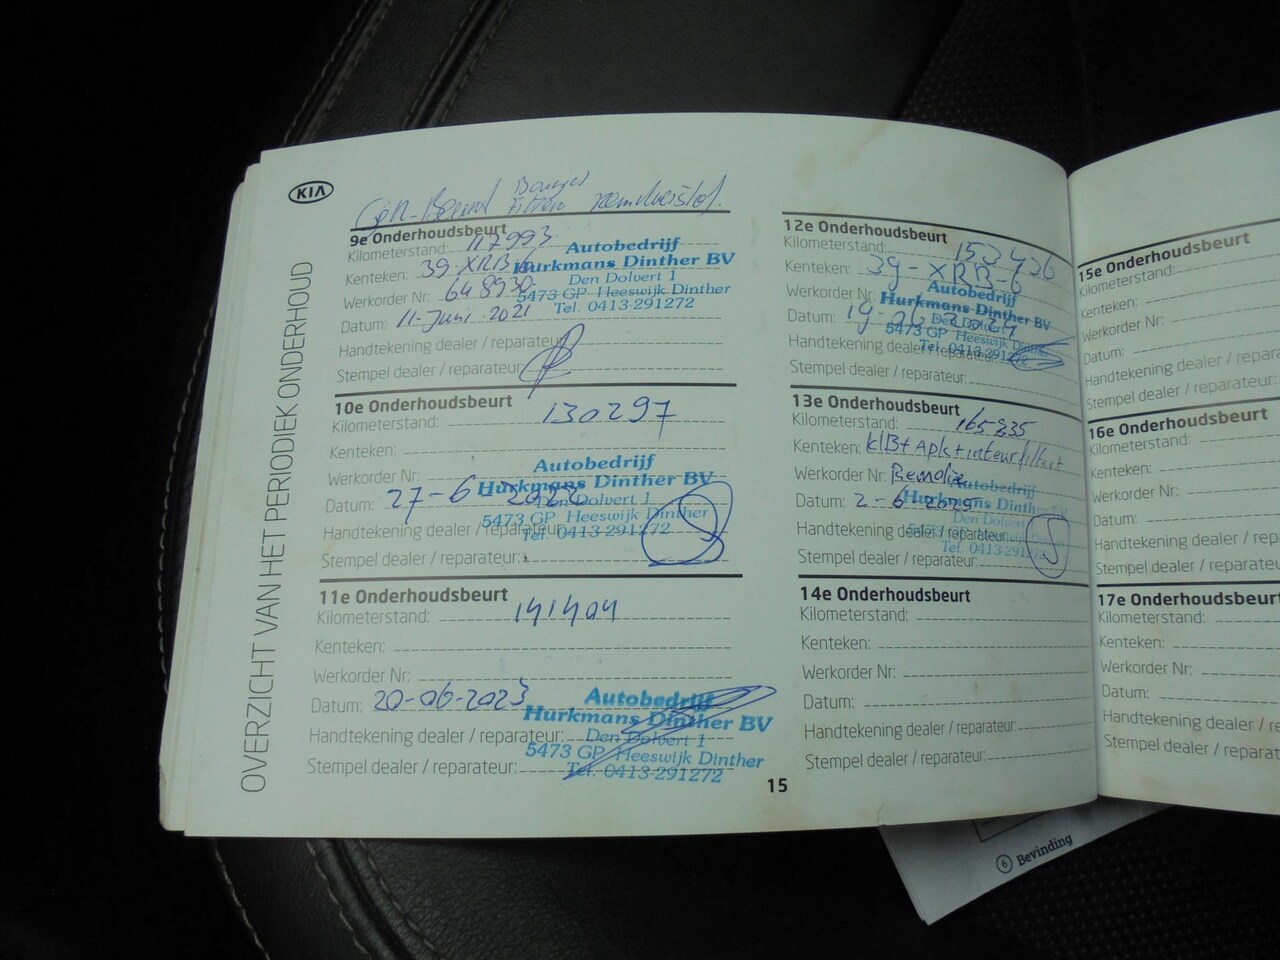 KIA
OVERZICHT VAN HET PERIODIEK ONDERHOUD
9e Onderhoudsbeurt
Kilometerstand: 117993
Kenteken: 39-XRB-6
Werkorder Nr: 648930
Datum: 11-Juni-2021
Handtekening dealer / reparateur:
Stempel dealer / reparateur:
Autobedrijf
Hurkmans Dinther BV
Den Dolvert 1
5473 GP Heeswijk Dinther
Tel. 0413-291272
10e Onderhoudsbeurt
Kilometerstand: 130297
Kenteken:
Werkorder Nr:
Datum: 27-6-2022
Handtekening dealer / reparateur:
Stempel dealer / reparateur:
Autobedrijf
Hurkmans Dinther BV
Den Dolvert 1
5473 GP Heeswijk Dinther
Tel. 0413-291272
11e Onderhoudsbeurt
Kilometerstand: 141404
Kenteken:
Werkorder Nr:
Datum: 20-06-2023
Handtekening dealer / reparateur:
Stempel dealer / reparateur:
Autobedrijf
Hurkmans Dinther BV
Den Dolvert 1
5473 GP Heeswijk Dinther
Tel. 0413-291272
12e Onderhoudsbeurt
Kilometerstand: 153436
Kenteken: 39-XRB-6
Werkorder Nr:
Datum: 19-06-2024
Handtekening dealer / reparateur:
Stempel dealer / reparateur:
Autobedrijf
Hurkmans Dinther BV
Den Dolvert 1
5473 GP Heeswijk Dinther
Tel. 0413-291272
13e Onderhoudsbeurt
Kilometerstand: 165835
Kenteken: klB + Apk + interuurfilter +
Werkorder Nr: Remolie
Datum: 2-6-2025
Handtekening dealer / reparateur:
Stempel dealer / reparateur:
Autobedrijf
Hurkmans Dinther BV
Den Dolvert 1
5473 GP Heeswijk Dinther
Tel. 0413-291272
14e Onderhoudsbeurt
Kilometerstand:
Kenteken:
Werkorder Nr:
Datum:
Handtekening dealer / reparateur:
Stempel dealer / reparateur:
15
15e Onderhoudsbeurt
Kilometerstand:
Kenteken:
Werkorder Nr:
Datum:
Handtekening dealer / repara
Stempel dealer / reparateur
16e Onderhoudsbeurt
Kilometerstand:
Kenteken:
Werkorder Nr:
Datum:
Handtekening dealer / repara
Stempel dealer / reparateu
17e Onderhoudsbeurt
Kilometerstand:
Kenteken:
Werkorder Nr:
Datum:
Handtekening dealer / re
Stempel dealer / reparat
6 Bevinding